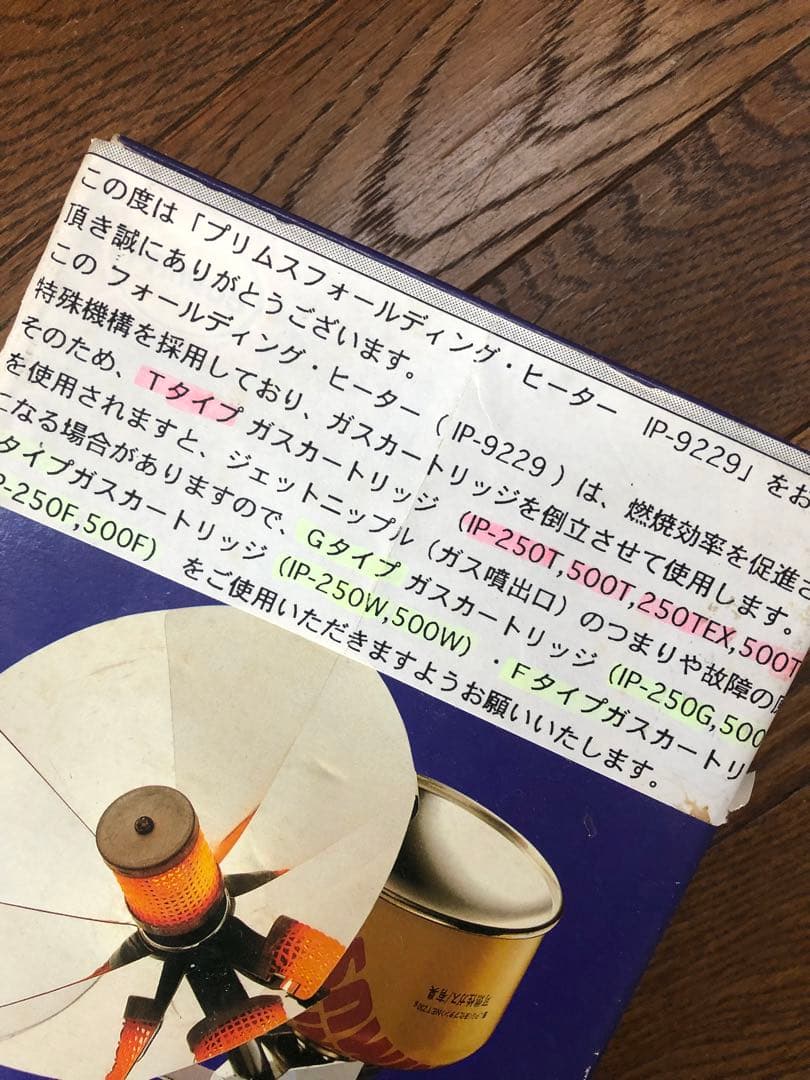 この度は「プリムスフォールディング・ヒーター　IP-9229」をお
頂き誠にありがとうございます。
この フォールディング・ヒーター( IP-9229 )は、燃焼効率を促進さ
特殊機構を採用しており、ガスカートリッジを倒立させて使用します。
そのため、Tタイプ ガスカートリッジ (IP-250T,500T,250TEX,500T
を使用されますと、ジェットニップル(ガス噴出口)のつまりや故障の
になる場合がありますので、Gタイプ ガスカートリッジ(IP-250G,500
タイプガスカートリッジ(IP-250W,500W)・Fタイプガスカートリ
P-250F,500F) をご使用いただきますようお願いいたします。
可燃性ガス/有臭